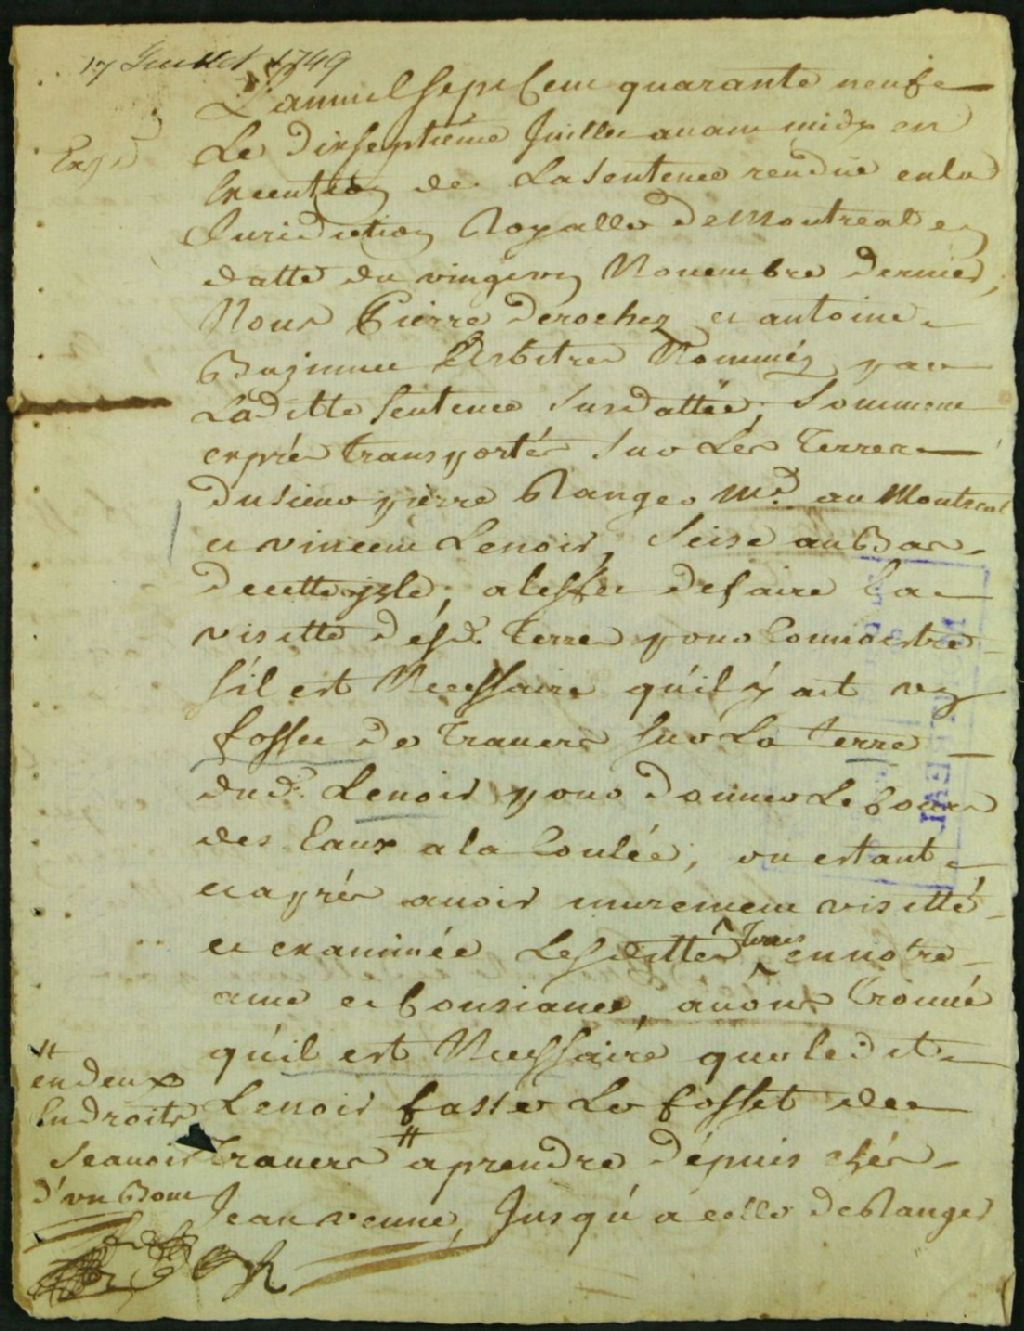 17 Juillet 1749
L'an mil sept Cent quarante neufe
Le dixseptieme Juillet avant midy en
Execution de La Sentence rendue en la
Juridiction Royalle de Montreal en
datte du vingt un Novembre dernier,
Nous Pierre Derocher et antoine
Bazinnet Arbitres Nommés par
Laditte Sentence Susdattée, Sommes
exprés transportés Sur Les Terres
du sieur pierre Ranger Md. au Montreal
et vincent Lenoir, Scise au Bas
de cette isle, a leffet de faire La
visitte desd. Terre pour Connoistre
s'il est Necessaire qu'il y ait un
fossee de Travers Sur La Terre
dud. Lenoir pour donner Le Cours
des Eaux a la Coulée, ou estant
et aprés avoir murement visitté
et examinée Lesdittes Terres en notre
ame et Consiance, avons Trouvé
qu'il est Necessaire que ledit
Lenoir fasse Le fosset de
Travers # a prendre dépuis chés
Jean venne, Jusqu'a celle de Ranger
#
en deux
Endroits
Scavoir
d'un Bout